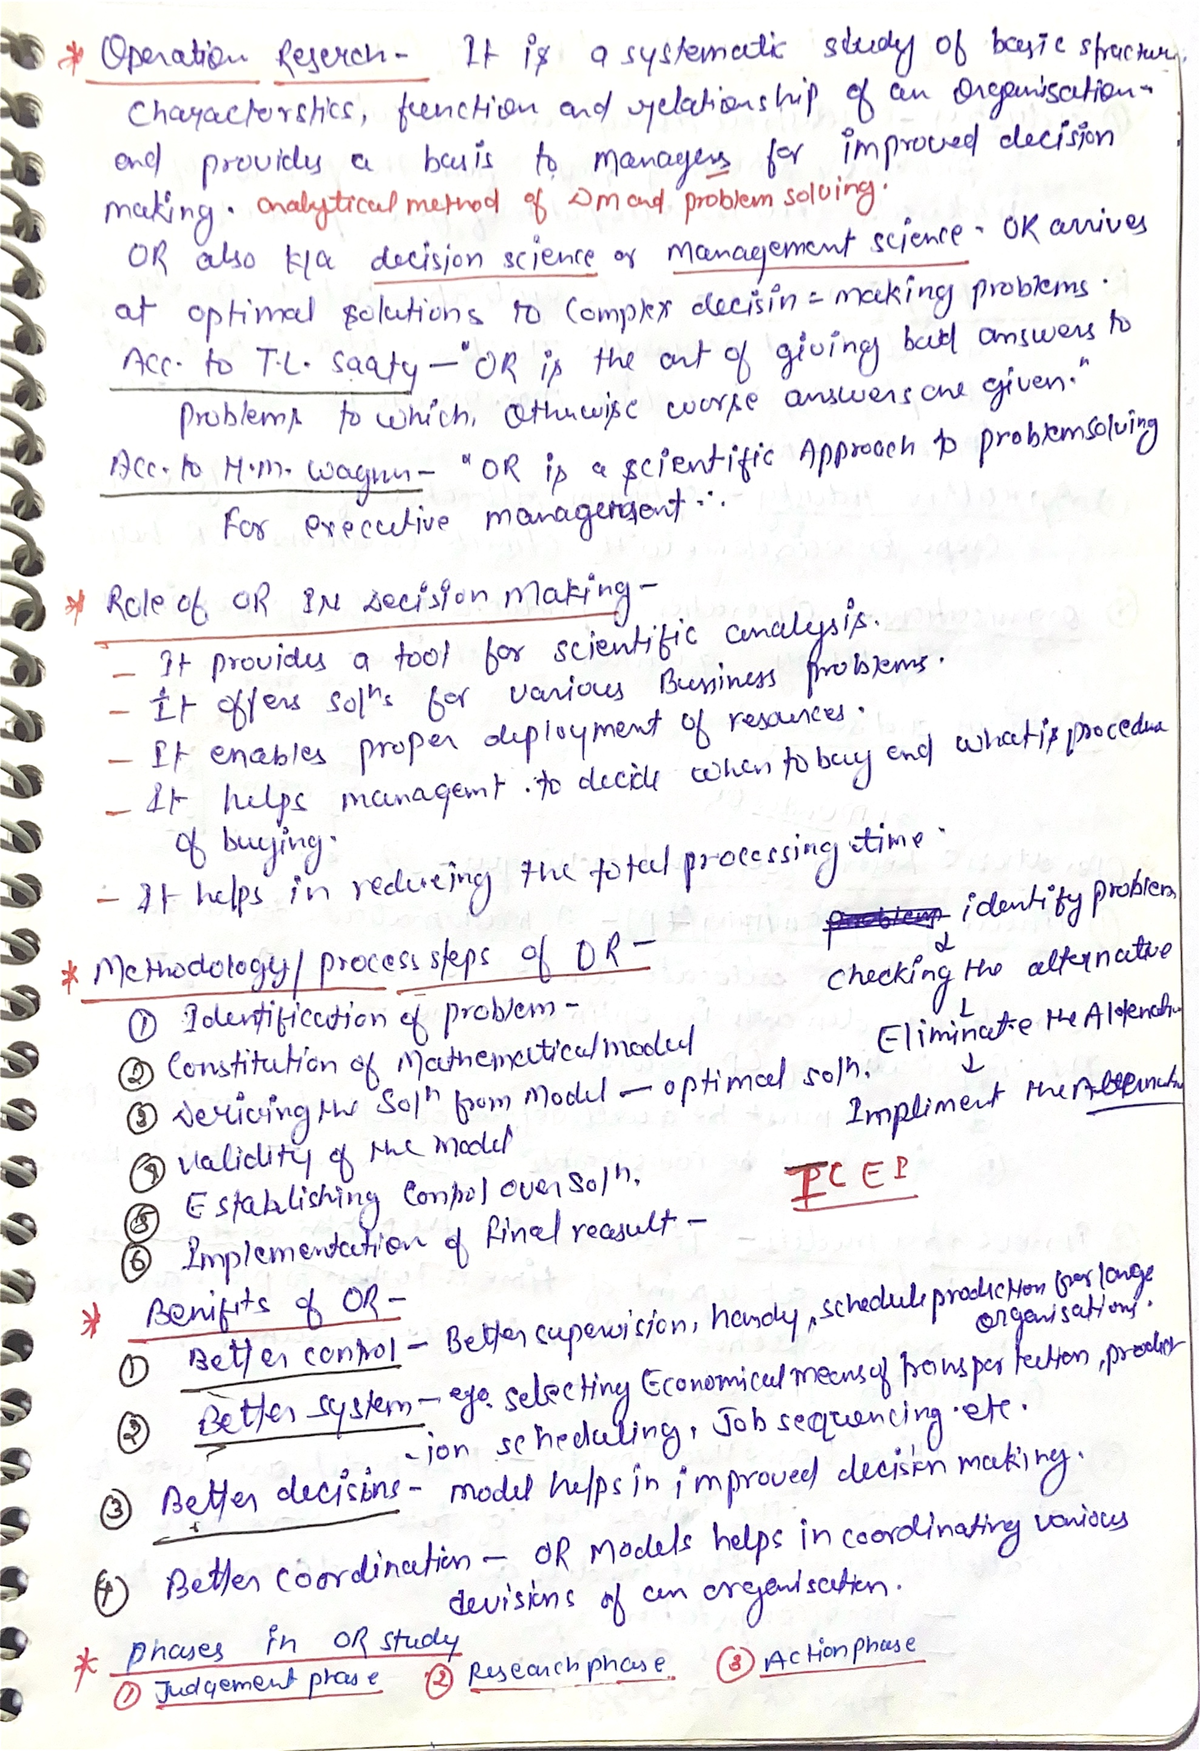 * Operation Reserch - It is a systematic study of basic structure,
Characterstics, function and relationship of an organisation-
and provides a basis to managers for improved decision
making. analytical method of DM and problem solving.
OR also k/a decision science or Management science - OR arrives
at optimal solutions to Complex decisin = making problems.
Acc. to T.L. Saaty - "OR is the art of giving bad answers to
problems to which, otherwise worse answers are given."
Acc. to H.M. Wagner - "OR is a scientific Approach to problemsolving
for executive management".
* Role of OR IN Decision Making -
- It provides a tool for scientific analysis.
- It offers solns for various Bussiness problems.
- It enables proper deployment of resources.
- It helps managemt. to decide when to buy and what is procedure
of buying.
- It helps in reducing the total processing time.
identify problem
↓
* Methodology/process steps of OR -
checking the alternative
↓
① Identification of problem -
Eliminate the Alternative
↓
② Constitution of Mathematical model
Impliment the Alternative
③ Deriving the Soln from Model - optimal soln.
④ Validity of the model
ICEI
⑤ Establishing Control over Soln.
⑥ Implementation of final reasult -
* Benifits of OR -
① Better control - Better supervision, handy, schedule production for large
organisations.
② Better system - eg. selecting Economical means of transportation, product
-ion scheduling, Job sequencing. etc.
③ Better decisins - model helps in improved decision making.
④ Better Coordination - OR Models helps in coordinating various
devisins of an organisation.
* phases in OR study
① Judgement phase ② Research phase ③ Action phase